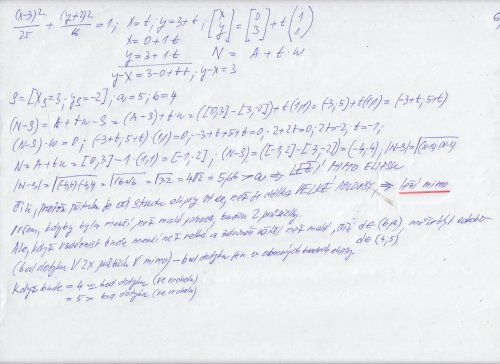 (x-3)²/25 + (y+2)²/16 = 1; x=t; y=3+t; [x y] = [0 3] + t(1 1)
x = 0+1·t
y = 3+1·t N = A + t·w
y-x = 3-0+t-t; y-x=3
S=[x_S=3; y_S=-2]; a=5; b=4
(N-S) = A+tw-S = (A-S)+tw = ([0,3]-[3,-2])+t(1,1) = (-3;5)+t(1,1) = (-3+t;5+t)
(N-S)·w=0; (-3+t;5+t)·(1,1)=0; -3+t+5+t=0; 2+2t=0; 2t=-2; t=-1;
N=A+tw=[0,3]-1·(1,1)=[-1,2]; (N-S)=([-1,2]-[3,-2])=(-4,4); |N-S|=√(N-S)·(N-S)
|N-S|=√(-4,4)·(-4,4)=√16+16=√32=4√2=5,66>a ⇒ LEŽÍ MIMO ELIPSU
délka VELKÉ POLOOSY ⇒ leží mimo
kdyby byla menší, než malá poloosa, budou 2 průsečíky
Ale, když vzdálenost bude menší než velká a zároveň větší než malá, čili d∈(b,a), může být
d∈(4,5)
(bod dotyku V 2x průsečík V mimo) - bod dotyku jen v obecných bodech elipsy
Když bude = 4 = bod dotyku (ve vrcholu)
= 5 = bod dotyku (ve vrcholu)